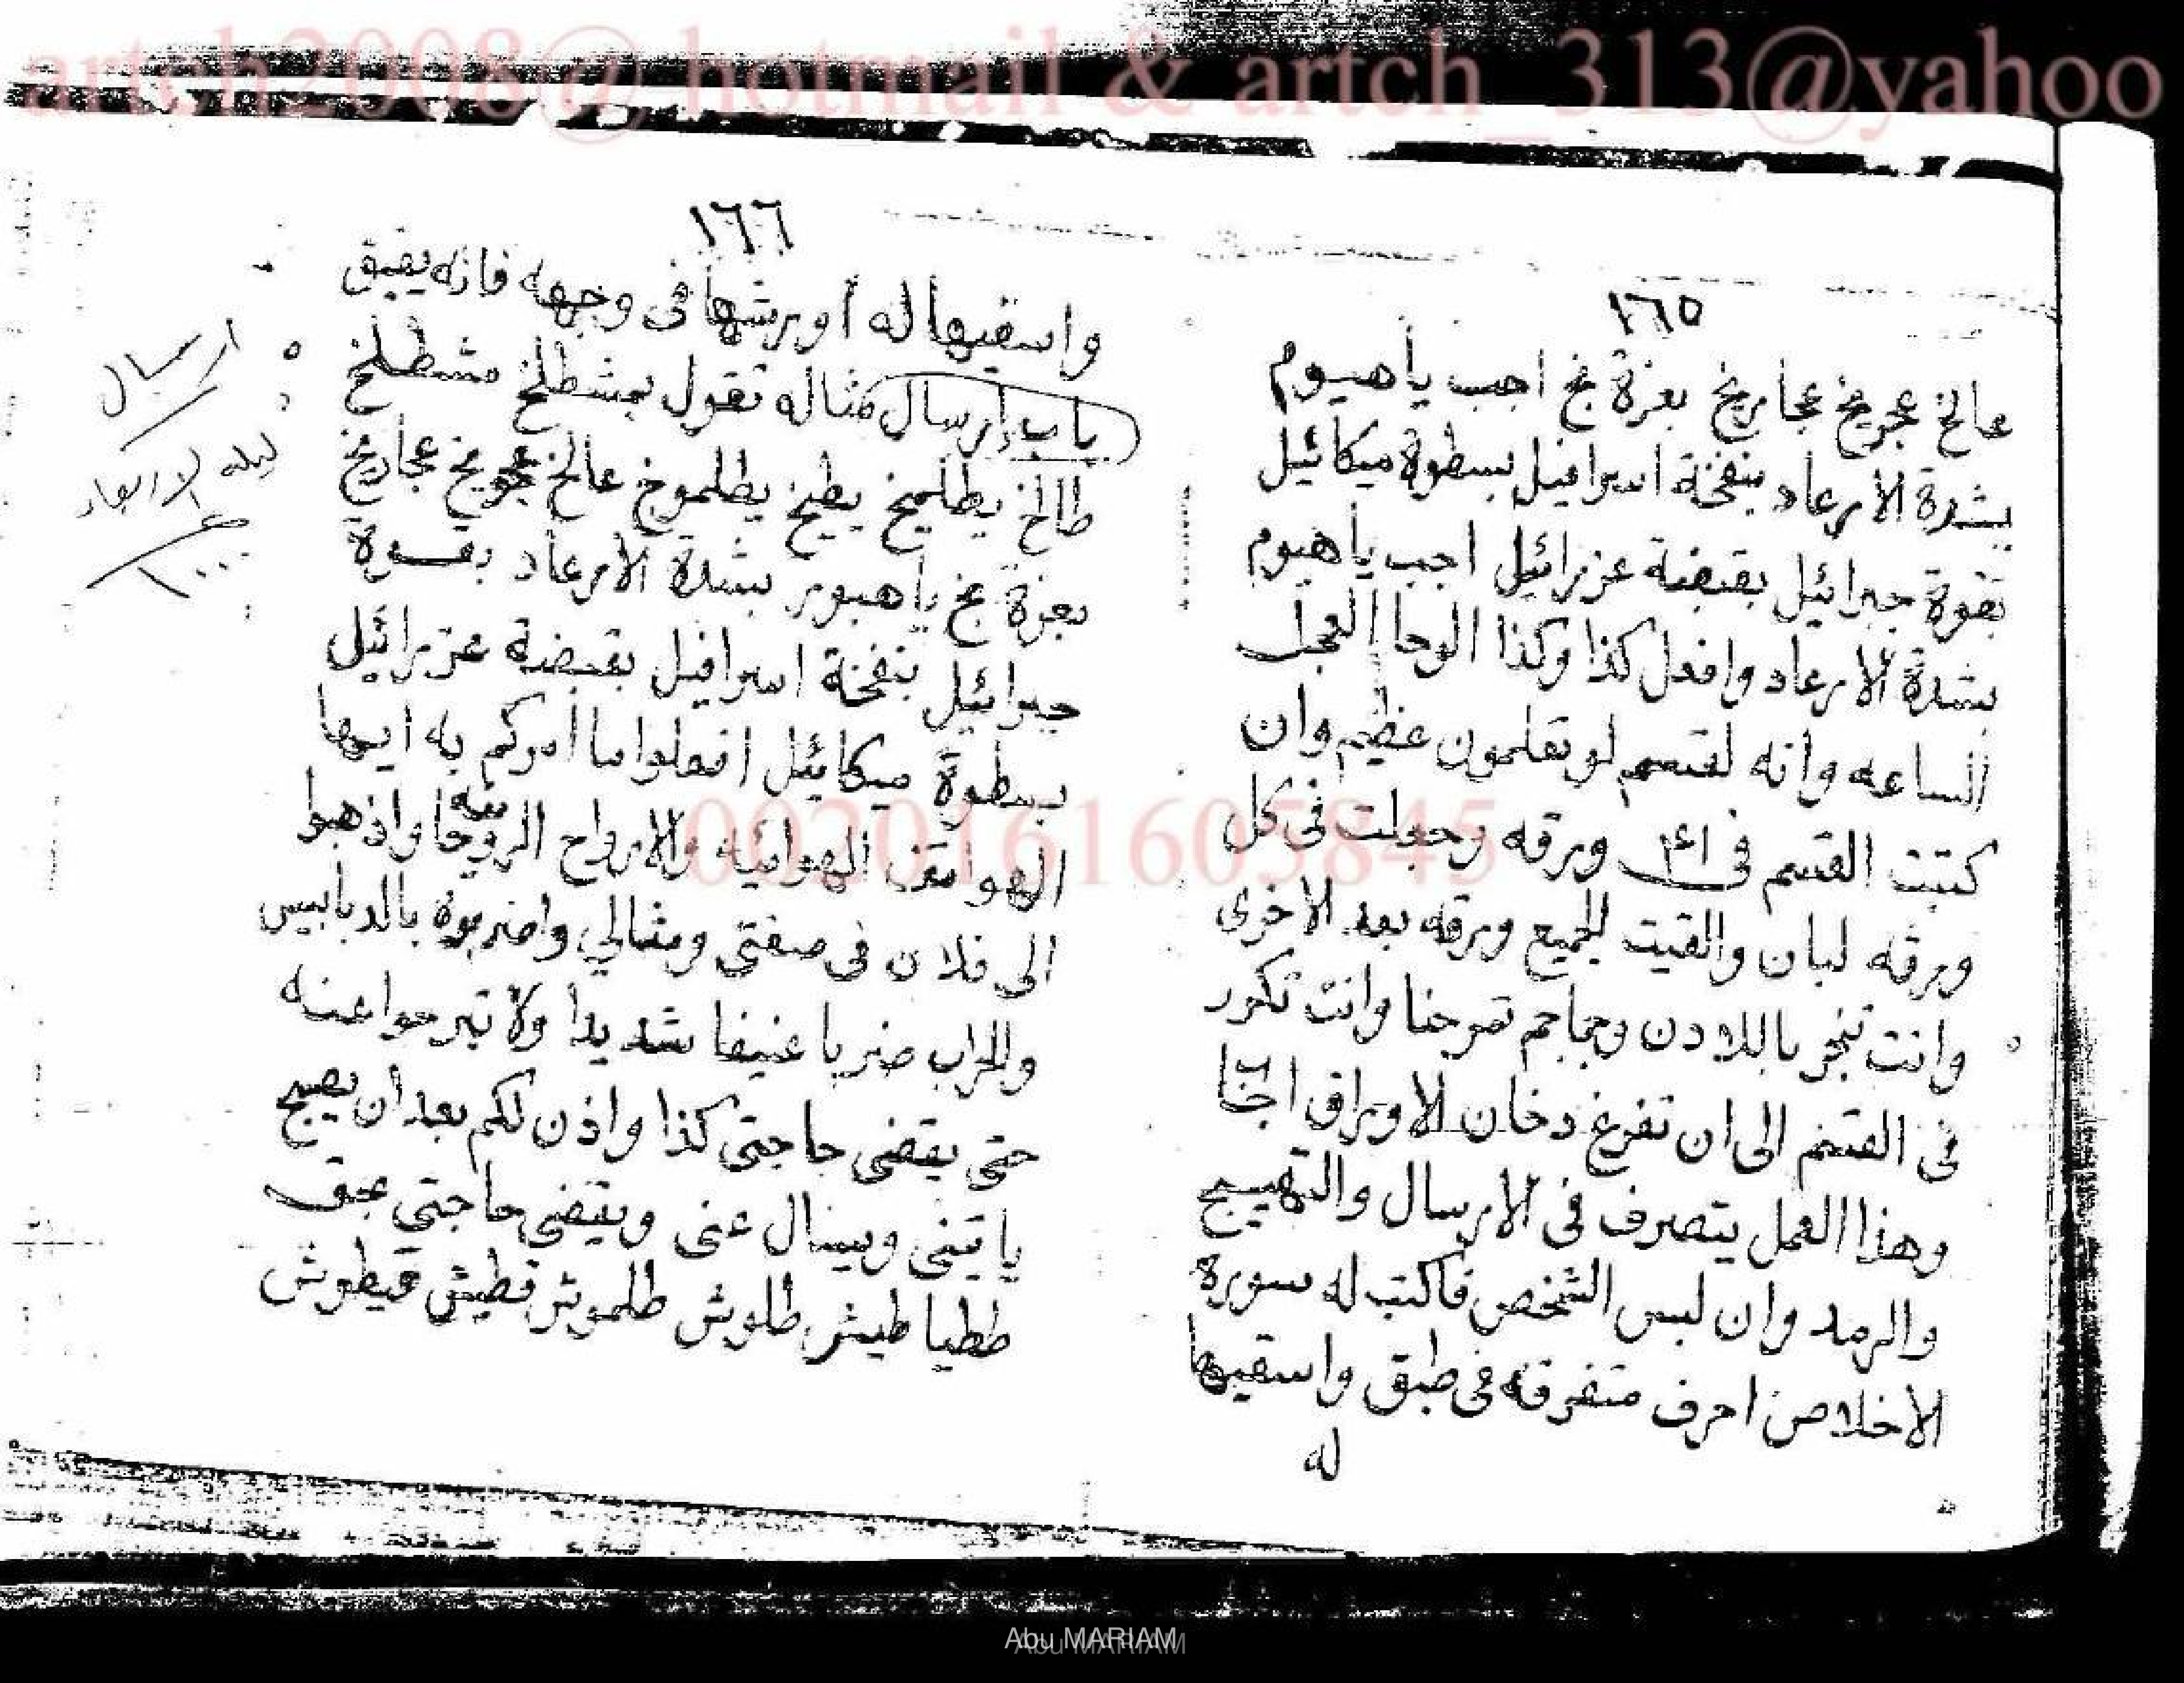 artch2008@ hotmail & artch_313@yahoo
١٦٥
عالخ عجريخ عجاريخ بعزة نخ اجب ياهيوم
بشدة الارعاد بنفخة اسرافيل بسطوة ميكائيل
بقوة جبرائيل بقبضة عزرائيل اجب ياهيوم
بشدة الارعاد وافعل كذا وكذا الوحا العجل
الساعه وانه لقسم لو تعلمون عظيم وان
كتبت القسم في ورقه وجعلت في كل
ورقه لبان والقيت الجميع ورقه بعد الاخرى
وانت تبخر باللادن وجماجم تمرحنا وانت تكرر
في القسم الى ان تفرغ دخان الاوراق
وهذا العمل يتصرف في الارسال والتهييج
والرمد وان لبس الشخص فاكتب له سورة
الاخلاص احرف متفرقه في طبق واسقيها
له
١٦٦
واسقيها له اورشها في وجهه فانه يفيق
باب ارسال مثاله تقول بمشطلخ مشطلخ
طالخ يطلميخ يطيخ يطلموخ عالخ عجويخ عجاريخ
بعزة نخ ياهيوم بشدة الارعاد بقوة
جبرائيل بنفخة اسرافيل بقبضة عزرائيل
بسطوة ميكائيل افعلوا ما امركم به ايها
الهواتف الهوائيه والارواح الروحانيه واذهبوا
الى فلان في صفتي ومثالي واضربوه بالدبابيس
والحراب ضربا عنيفا شديدا ولا تبرحوا عنه
حتى يقضى حاجتى كذا واذن لكم بعد ان يصبح
ياتينى ويسال عنى ويقضى حاجتي بحق
ططيا طيش طلوش طلموش قطيش قيطوش
ارسال
ليله الاربعاء
١٠٠٠
0020161605845
Abu MARIAM